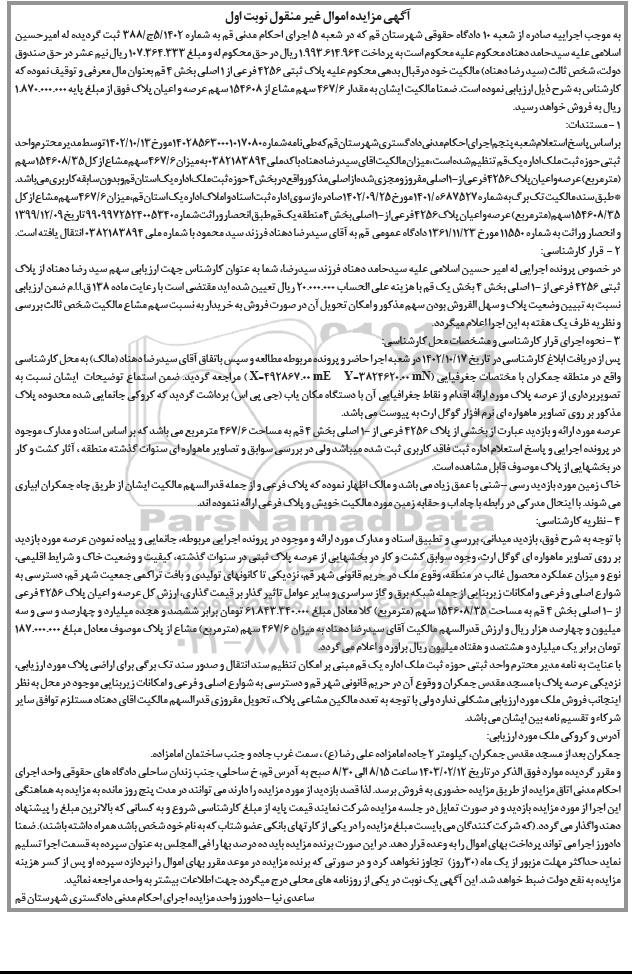 آگهی مزایده اموال غیر منقول نوبت اول
به موجب اجراییه صادره از شعبه ۱۰ دادگاه حقوقی شهرستان قم که در شعبه ۵ اجرای احکام مدنی قم به شماره ۵/۱۴۰۲ج/۳۸۸ ثبت گردیده له امیرحسین
اسلامی علیه سیدحامد دهناد محکوم علیه محکوم است به پرداخت ۱.۹۹۳.۶۱۴.۹۶۴ ریال در حق محکوم له و مبلغ ۱۰۷.۳۶۴.۳۳۳ ریال نیم عشر در حق صندوق
دولت، شخص ثالث (سید رضا دهناد) مالکیت خود در قبال بدهی محکوم علیه پلاک ثبتی ۴۲۵۶ فرعی از ۱ اصلی بخش ۴ قم بعنوان مال معرفی و توقیف نموده که
کارشناس به شرح ذیل ارزیابی نموده است. ضمنا مالکیت ایشان به مقدار ۴۶۷/۶ سهم مشاع از ۱۵۴۶۰۸ سهم عرصه و اعیان پلاک فوق از مبلغ پایه ۱.۸۷۰.۰۰۰.۰۰۰
ریال به فروش خواهد رسید.
۱ - مستندات:
بر اساس پاسخ استعلام شعبه پنجم اجرای احکام مدنی دادگستری شهرستان قم که طی نامه شماره ۱۴۰۲۸۵۶۳۰۰۰۱۰۱۷۰۸۰ مورخ ۱۴۰۲/۱۰/۱۳ توسط مدیر محترم واحد
ثبتی حوزه ثبت ملک اداره یک قم تنظیم شده است، میزان مالکیت اقای سیدرضا دهناد با کد ملی ۰۳۸۲۱۸۳۸۹۴ به میزان ۴۶۷/۶ سهم مشاع از کل ۱۵۴۶۰۸/۳۵ سهم
(مترمربع) عرصه و اعیان پلاک ۴۲۵۶ فرعی از ۱- اصلی مفروز و مجزی شده از اصلی مذکور واقع در بخش ۴ حوزه ثبت ملک اداره یک استان قم و بدون سابقه کاربری می باشد.
*طبق سند مالکیت تک برگ به شماره ۰۶۸۷۵۲۷/۱۴۰۱ مورخ ۱۴۰۲/۰۹/۲۵ صادره از سوی اداره ثبت اسناد و املاک اداره یک استان قم، میزان ۴۶۷/۶ سهم مشاع از کل
۱۵۴۶۰۸/۳۵ سهم (مترمربع) عرصه و اعیان پلاک ۴۲۵۶ فرعی از ۱- اصلی بخش ۴ منطقه یک قم طبق انحصار وراثت شماره ۹۹۰۹۹۷۲۵۲۴۰۰۵۳۴۰ تاریخ ۱۳۹۹/۱۲/۰۹
و انحصار وراثت به شماره ۱۱۵۵۰ مورخ ۱۳۶۱/۱۱/۲۳ دادگاه عمومی قم به آقای سیدرضا دهناد فرزند سید محمود با شماره ملی ۰۳۸۲۱۸۳۸۹۴ انتقال یافته است.
۲ - قرار کارشناسی:
در خصوص پرونده اجرایی له امیر حسین اسلامی علیه سیدحامد دهناد فرزند سیدرضا، شما به عنوان کارشناس جهت ارزیابی سهم سید رضا دهناد از پلاک
ثبتی ۴۲۵۶ فرعی از ۱- اصلی بخش ۴ بخش یک قم با هزینه علی الحساب ۲۰.۰۰۰.۰۰۰ ریال تعیین شده اید مقتضی است با رعایت ماده ۱۳۸ ق.ا.ا.م ضمن ارزیابی
نسبت به تبیین وضعیت پلاک و سهل الفروش بودن سهم مذکور و امکان تحویل آن در صورت فروش به خریدار به نسبت سهم مشاع مالکیت شخص ثالث بررسی
و نظریه ظرف یک هفته به این اجرا اعلام میگردد.
۳ - نحوه اجرای قرار کارشناسی و مشخصات محل کارشناسی:
پس از دریافت ابلاغ کارشناسی در تاریخ ۱۴۰۲/۱۰/۱۷ در شعبه اجرا حاضر و پرونده مربوطه مطالعه و سپس با تفاق آقای سیدرضا دهناد (مالک) به محل کارشناسی
واقع در منطقه جمکران با مختصات جغرفیایی (X=۴۹۲۸۶۷.۰۰ mE Y=۳۸۲۴۶۲۰.۰۰ mN) مراجعه گردید. ضمن استماع توضیحات ایشان نسبت به
تصویربرداری از عرصه پلاک مورد ارائه اقدام و نقاط جغرافیایی آن با دستگاه مکان یاب (جی پی اس) برداشت گردید که کروکی جانمایی شده محدوده پلاک
مذکور بر روی تصاویر ماهواره ای نرم افزار گوگل ارث به پیوست می باشد.
عرصه مورد ارائه و بازدید عبارت از بخشی از پلاک ۴۲۵۶ فرعی از ۱- اصلی بخش ۴ قم به مساحت ۴۶۷/۶ مترمربع می باشد که بر اساس اسناد و مدارک موجود
در پرونده اجرایی و پاسخ استعلام اداره ثبت فاقد کاربری ثبت شده میباشد ولی در بررسی سوابق و تصاویر ماهواره ای سنوات گذشته منطقه ، آثار کشت و کار
در بخشهایی از پلاک موصوف قابل مشاهده است.
خاک زمین مورد بازدید رسی -شنی با عمق زیاد می باشد و مالک اظهار نموده که پلاک فرعی و از جمله قدرالسهم مالکیت ایشان از طریق چاه جمکران ابیاری
می شوند. با اینحال مدرکی در رابطه با چاه اب و حقابه زمین مورد مالکیت خویش و پلاک فرعی ارائه ننموده اند.
۴ - نظریه کارشناسی:
با توجه به شرح فوق، بازدید میدانی، بررسی و تطبیق اسناد و مدارک مورد ارائه و موجود در پرونده اجرایی مربوطه، جانمایی و پیاده نمودن عرصه مورد بازدید
بر روی تصاویر ماهواره ای گوگل ارث، وجود سوابق کشت و کار در بخشهایی از عرصه پلاک ثبتی در سنوات گذشته، کیفیت و وضعیت خاک و شرایط اقلیمی،
نوع و میزان عملکرد محصول غالب در منطقه، وقوع ملک در حریم قانونی شهر قم، نزدیکی تا کانونهای تولیدی و بافت تراکمی جمعیت شهر قم، دسترسی به
شوارع اصلی و فرعی و امکانات زیربنایی از جمله شبکه برق و گاز سراسری و سایر عوامل تاثیر گذار بر قیمت گذاری، ارزش کل عرصه و اعیان پلاک ۴۲۵۶ فرعی
از ۱- اصلی بخش ۴ قم به مساحت ۱۵۴۶۰۸/۳۵ سهم (مترمربع) کلا معادل مبلغ ۶۱.۸۴۳.۳۴۰.۰۰۰ تومان برابر ششصد و هجده میلیارد و چهارصد و سی و سه
میلیون و چهارصد هزار ریال و ارزش قدرالسهم مالکیت آقای سیدرضا دهناد به میزان ۴۶۷/۶ سهم (مترمربع) مشاع از پلاک موصوف معادل مبلغ ۱۸۷.۰۰۰.۰۰۰
تومان برابر یک میلیارد و هشتصد و هفتاد میلیون ریال براورد و اعلام می گردد.
با عنایت به نامه مدیر محترم واحد ثبتی حوزه ثبت ملک اداره یک قم مبنی بر امکان تنظیم سند انتقال و صدور سند تک برگی برای اراضی پلاک مورد ارزیابی،
نزدیکی عرصه پلاک با مسجد مقدس جمکران و وقوع آن در حریم قانونی شهر قم و دسترسی به شوارع اصلی و فرعی و امکانات زیربنایی موجود در محل به نظر
اینجانب فروش ملک مورد ارزیابی مشکلی ندارد ولی با توجه به تعدد مالکین مشاعی پلاک، تحویل مفروزی قدرالسهم مالکیت اقای دهناد مستلزم توافق سایر
شرکاء و تقسیم نامه بین ایشان می باشد.
آدرس و کروکی ملک مورد ارزیابی:
جمکران بعد از مسجد مقدس جمکران، کیلومتر ۲ جاده امامزاده علی رضا (ع) ، سمت غرب جاده و جنب ساختمان امامزاده.
و مقرر گردیده موارد فوق الذکر در تاریخ ۱۴۰۳/۰۲/۱۲ ساعت ۸/۱۵ الی ۸/۳۰ صبح به آدرس قم، خ ساحلی، جنب زندان ساحلی دادگاه های حقوقی واحد اجرای
احکام مدنی اتاق مزایده از طریق مزایده حضوری به فروش برسد. لذا قصد بازدید از مورد مزایده را دارند می توانند در مدت پنج روز مانده به مزایده به هماهنگی
این اجرا از مورد مزایده بازدید و در صورت تمایل در جلسه مزایده شرکت نمایند قیمت پایه از مبلغ کارشناسی شروع و به کسانی که بالاترین مبلغ را پیشنهاد
دهند واگذار می گردد. (که شرکت کنندگان می بایست مبلغ مزایده را در یکی از کارتهای بانکی عضو شتاب که به نام خود شخص باشد همراه داشته باشند). ضمنا
دادورز اجرا می تواند پرداخت بهای اموال را به وعده قرار دهد. در این صورت برنده مزایده باید ده درصد بها را فی المجلس به عنوان سپرده به قسمت اجرا تسلیم
نماید حداکثر مهلت مزبور از یک ماه (۳۰روز) تجاوز نخواهد کرد و در صورتی که برنده مزایده در موعد مقرر بهای اموال را نپردازد سپرده او پس از کسر هزینه
مزایده به نفع دولت ضبط خواهد شد. این آگهی یک نوبت در یکی از روزنامه های محلی درج میگردد جهت اطلاعات بیشتر به واحد مراجعه نمائید.
ساعدی نیا – دادورز واحد مزایده اجرای احکام مدنی دادگستری شهرستان قم
ParsNamadData